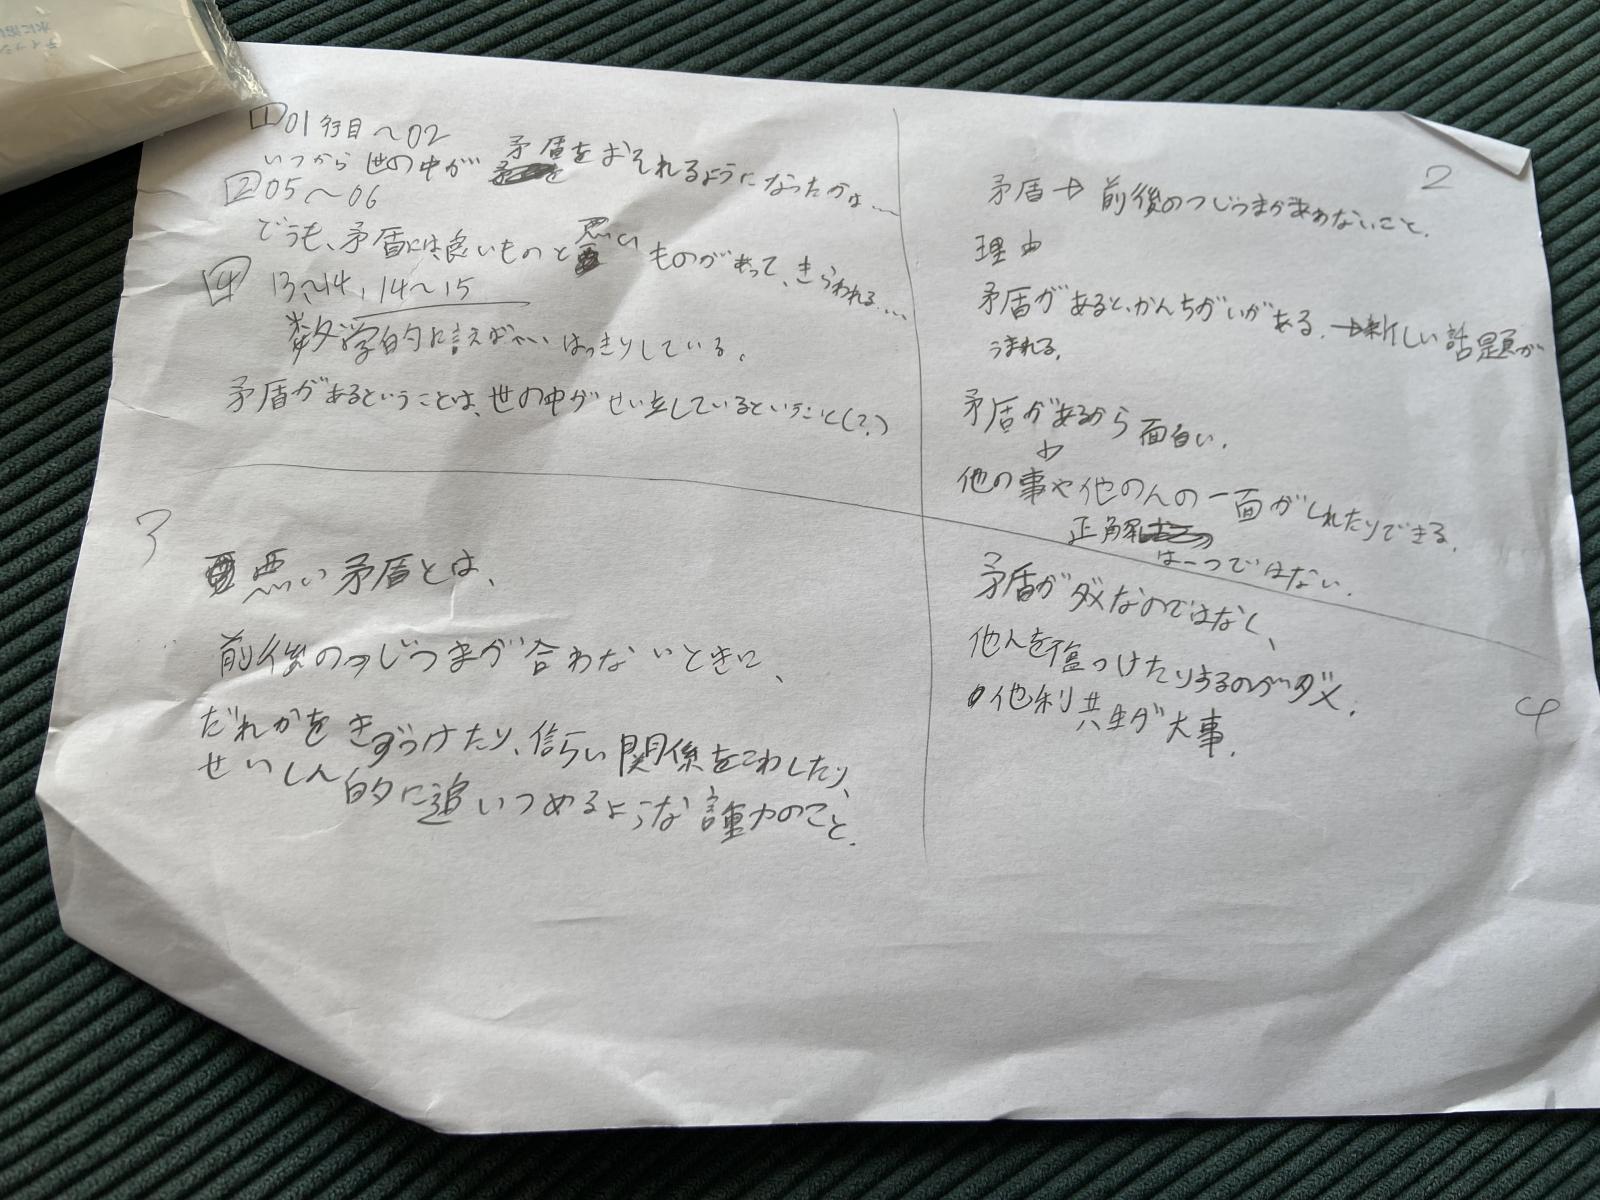 1 01行目〜02
いつから世の中が矛盾をおそれるようになったかは…
2 05〜06
どうも、矛盾には良いものと悪いものがあって、きらわれる…
4 13〜14、14〜15
数学的に言えば… はっきりしている。
矛盾があるということは、世の中がせい立しているということ(?)
2
矛盾→前後のつじつまがあわないこと。
理由
矛盾があると、かんちがいがある。→新しい話題が
うまれる。
矛盾があるから面白い。
↓
他の事や他の人の一面がしれたりできる。
正解は一つではない。
3
悪い矛盾とは、
前後のつじつまが合わないときに、
だれかをきずつけたり、信らい関係をこわしたり、
せいしん的に追いつめるような
のこと。
4
矛盾がダメなのではなく、
他人を傷つけたりするのがダメ。
他利共生が大事。